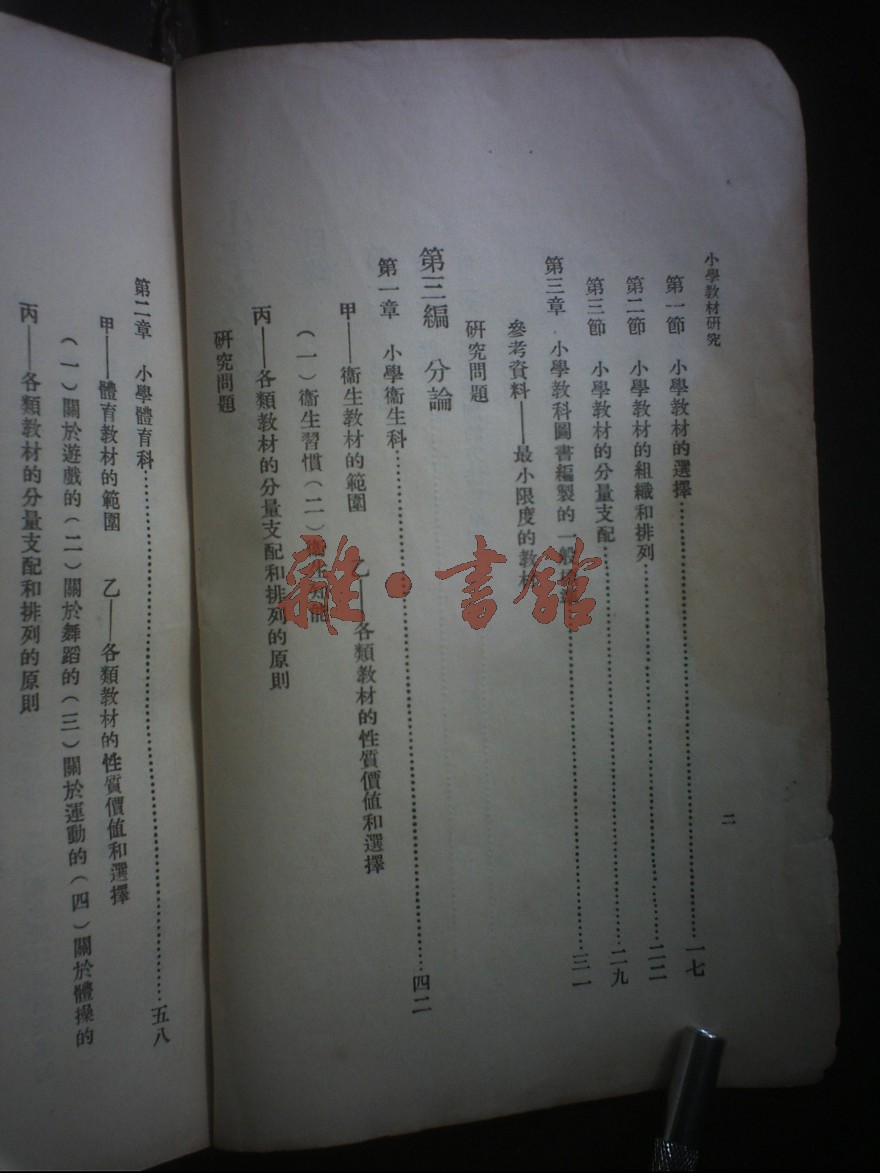 小學教材研究
二
第一節　小學教材的選擇……一七
第二節　小學教材的組織和排列……二二
第三節　小學教材的分量支配……二九
第三章　小學教科圖書編製的一般……三一
參考資料——最小限度的教材
研究問題
第三編　分論
第一章　小學衞生科……四二
甲——衞生教材的範圍　乙——各類教材的性質價值和選擇
（一）衞生習慣（二）衞生知能
丙——各類教材的分量支配和排列的原則
研究問題
第二章　小學體育科……五八
甲——體育教材的範圍　乙——各類教材的性質價值和選擇
（一）關於遊戲的（二）關於舞蹈的（三）關於運動的（四）關於體操的
丙——各類教材的分量支配和排列的原則
雜·書館